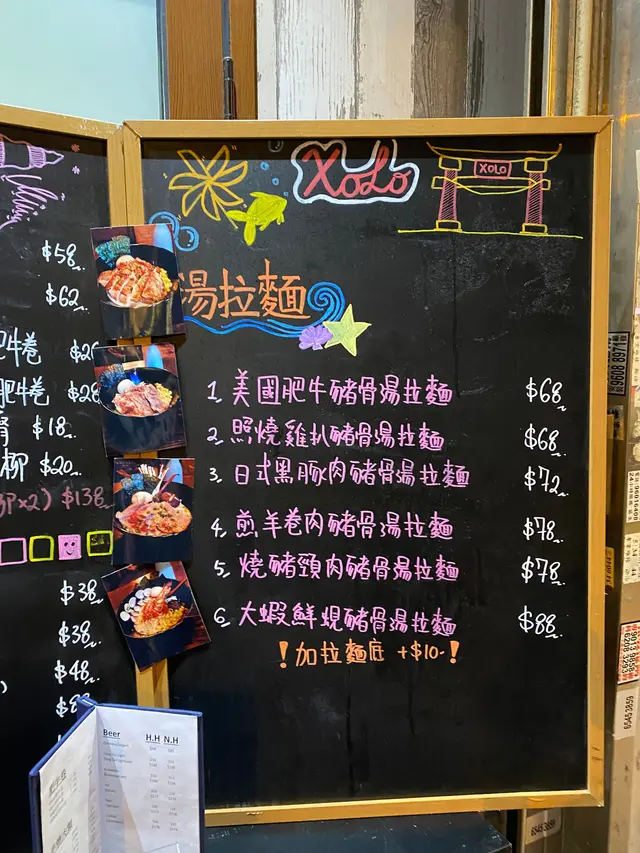 XoLo
XOLO
湯拉麵
1. 美國肥牛豬骨湯拉麵 $68
2. 照燒雞扒豬骨湯拉麵 $68
3. 日式黑豚肉豬骨湯拉麵 $72
4. 煎羊卷肉豬骨湯拉麵 $78
5. 燒豬頸肉豬骨湯拉麵 $78
6. 大蝦鮮蜆豬骨湯拉麵 $88
! 加拉麵底 +$10- !
$58
$62
牛卷
肥牛卷 $28
$18
柳 $20
x2) $138
$38
$38
$48
Beer H.H N.H
9608 8971
6545 3859